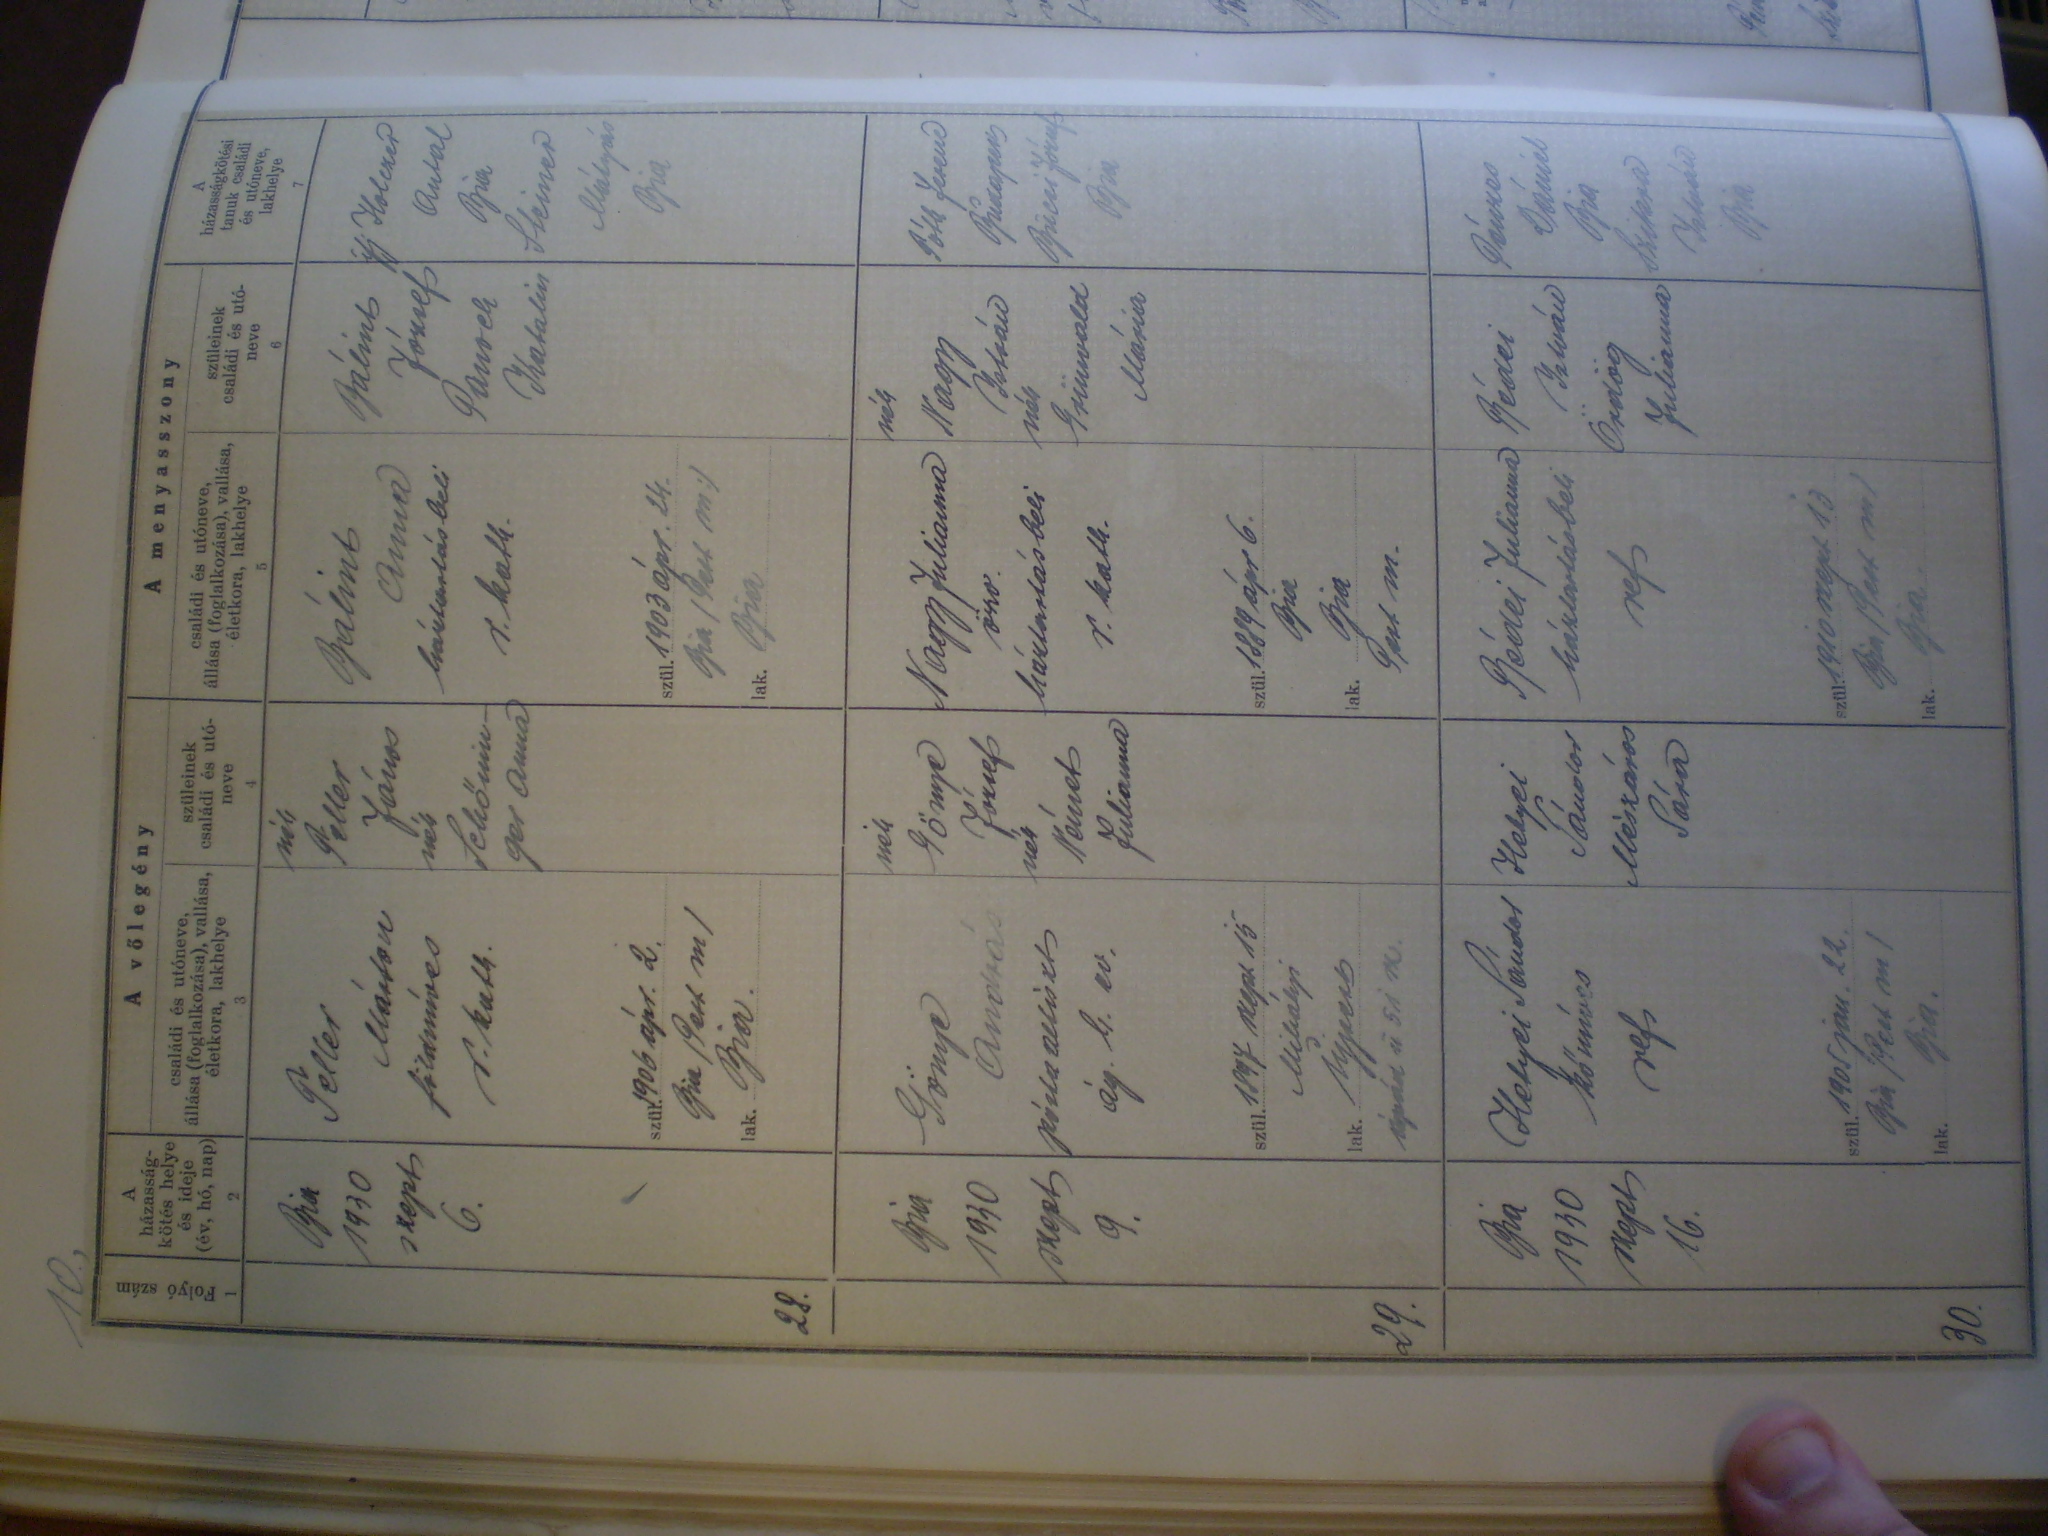 10.,
A vőlegény
A menyasszony
Folyó szám
1
A
házasság-
kötés helye
és ideje
(év, hó, nap)
2
családi és utóneve,
állása (foglalkozása), vallása,
életkora, lakhelye
3
szüleinek
családi és utó-
neve
4
családi és utóneve,
állása (foglalkozása), vallása,
életkora, lakhelye
5
szüleinek
családi és utó-
neve
6
A
házasságkötési
tanuk családi
és utóneve,
lakhelye
7
28.
Bia
1930
szept
6.
Peller
Márton
földmíves
r. kath.
szül. 1906 ápr. 2.
Bia /Pest m/
lak. Bia.
néh
Peller
János
néh
Schőnin-
ger Anna
Bálint
Anna
háztartásbeli
r. kath.
szül. 1903 ápr. 24.
Bia /Pest m/
lak. Bia
Bálint
József
Panoch
Katalin
ifj Holczer
Antal
Bia
Steiner
Mátyás
Bia
29.
Bia
1930
szept
9.
Gönye
András
postaaltiszt
ág. h. ev.
szül. 1897 szept 15
Mihályi
lak. Ujpest
néh
Gönye
József
néh
Német
Julianna
Nagy Julianna
özv.
háztartásbeli
r. kath.
szül. 1889 ápr 6.
Bia
lak. Bia
Pest m.
néh
Nagy
István
néh
Grünwald
Mária
Tóth Ferenc
Budapest
József
Bia
30.
Bia
1930
szept
16.
Helyei Sándor
kőmíves
ref
szül. 1905 jan. 22.
Bia /Pest m/
lak. Bia.
Helyei
Sándor
Mészáros
Sára
Bédei Julianna
háztartásbeli
ref
szül. 1910 szept 13
Bia /Pest m/
lak. Bia.
Bédei
István
Ördög
Julianna
Dániel
Bia
István
Bia